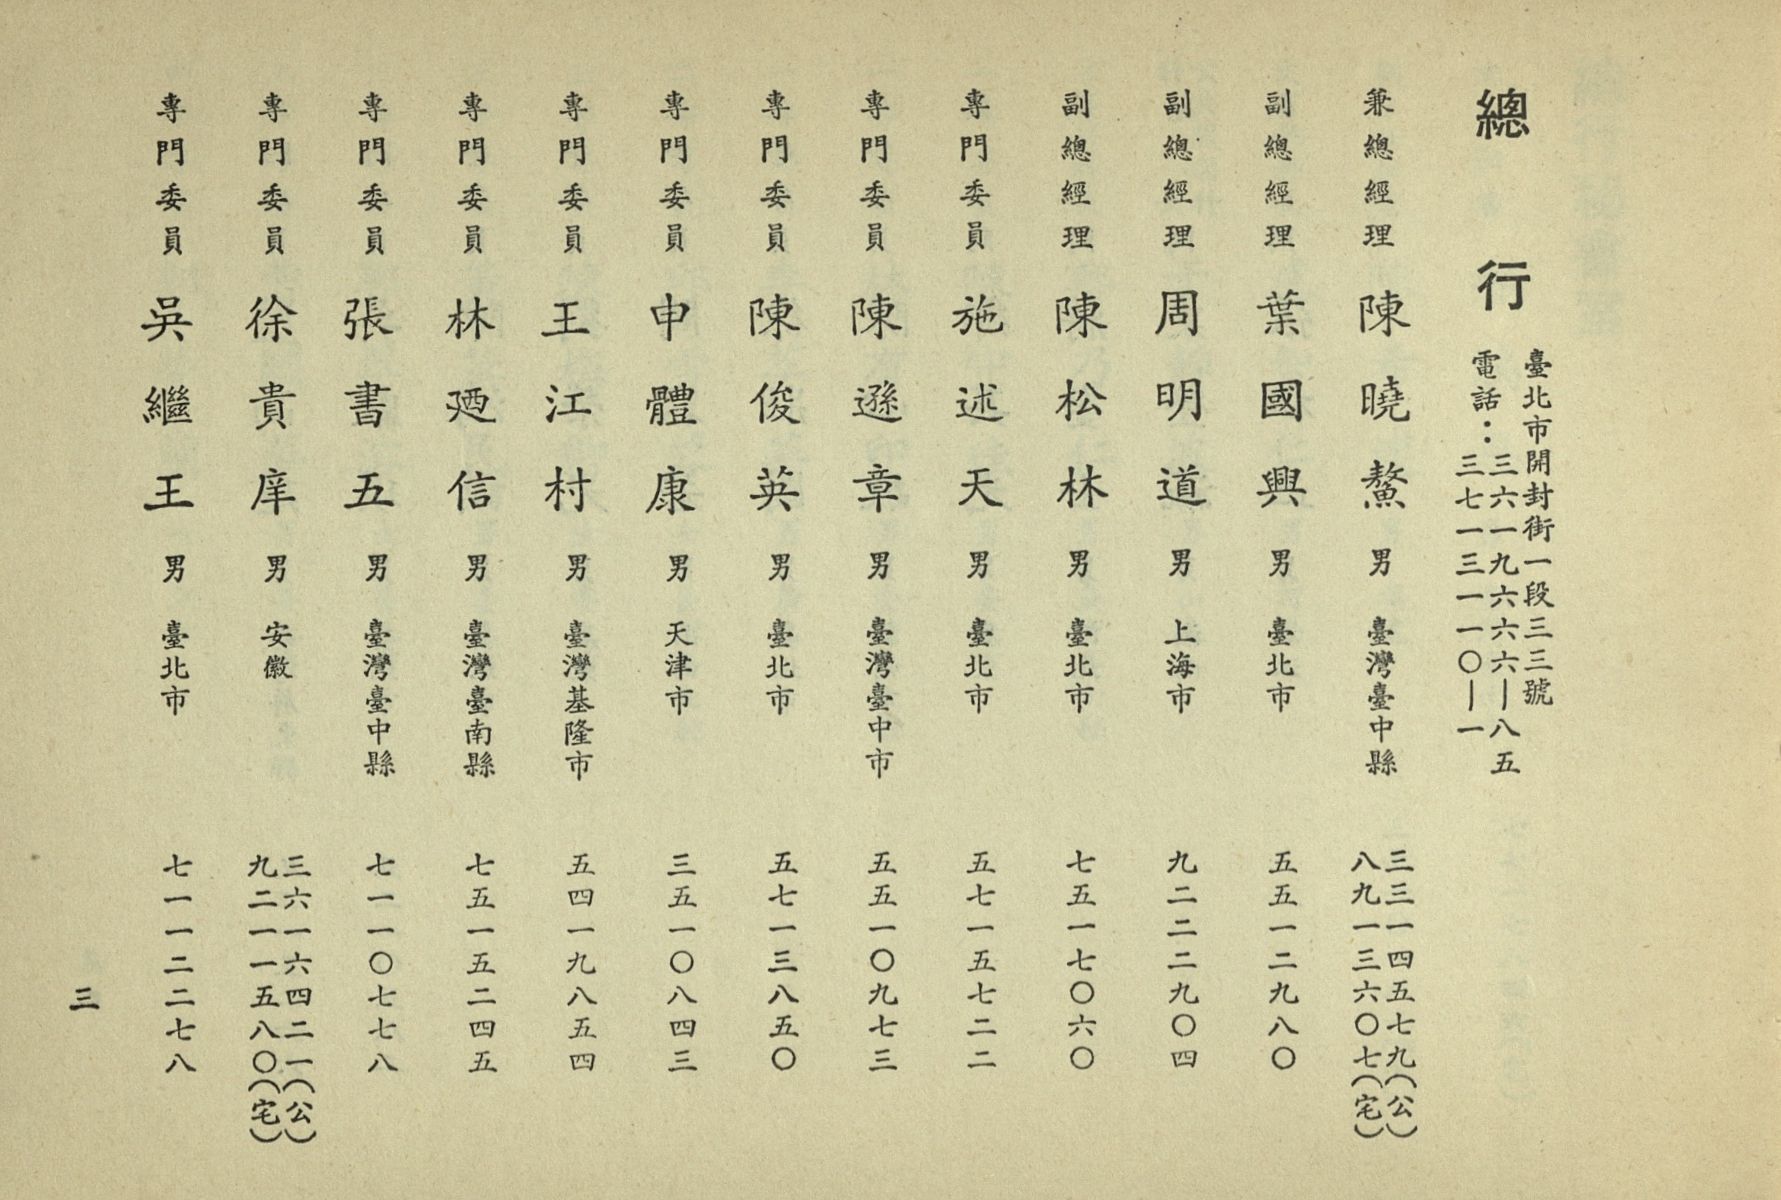 總行
臺北市開封街一段三三號
電話：三六一九六六六—八五
三七一三一一〇—一
兼總經理 陳曉鰲 男 臺灣臺中縣 三三一四五七九(公)
八九一三六〇七(宅)
副總經理 葉國興 男 臺北市 五五一二九八〇
副總經理 周明道 男 上海市 九二二二九〇四
副總經理 陳松林 男 臺北市 七五一七〇六〇
專門委員 施述天 男 臺北市 五七一五七二二
專門委員 陳遜章 男 臺灣臺中市 五五一〇九七三
專門委員 陳俊英 男 臺北市 五七一三八五〇
專門委員 申體康 男 天津市 三五一〇八四三
專門委員 王江村 男 臺灣基隆市 五四一九八五四
專門委員 林廼信 男 臺灣臺南縣 七五一五二四五
專門委員 張書五 男 臺灣臺中縣 七一一〇七七八
專門委員 徐貴庠 男 安徽 三六一六四二一(公)
九二一一五八〇(宅)
專門委員 吳繼王 男 臺北市 七一一二二七八
三